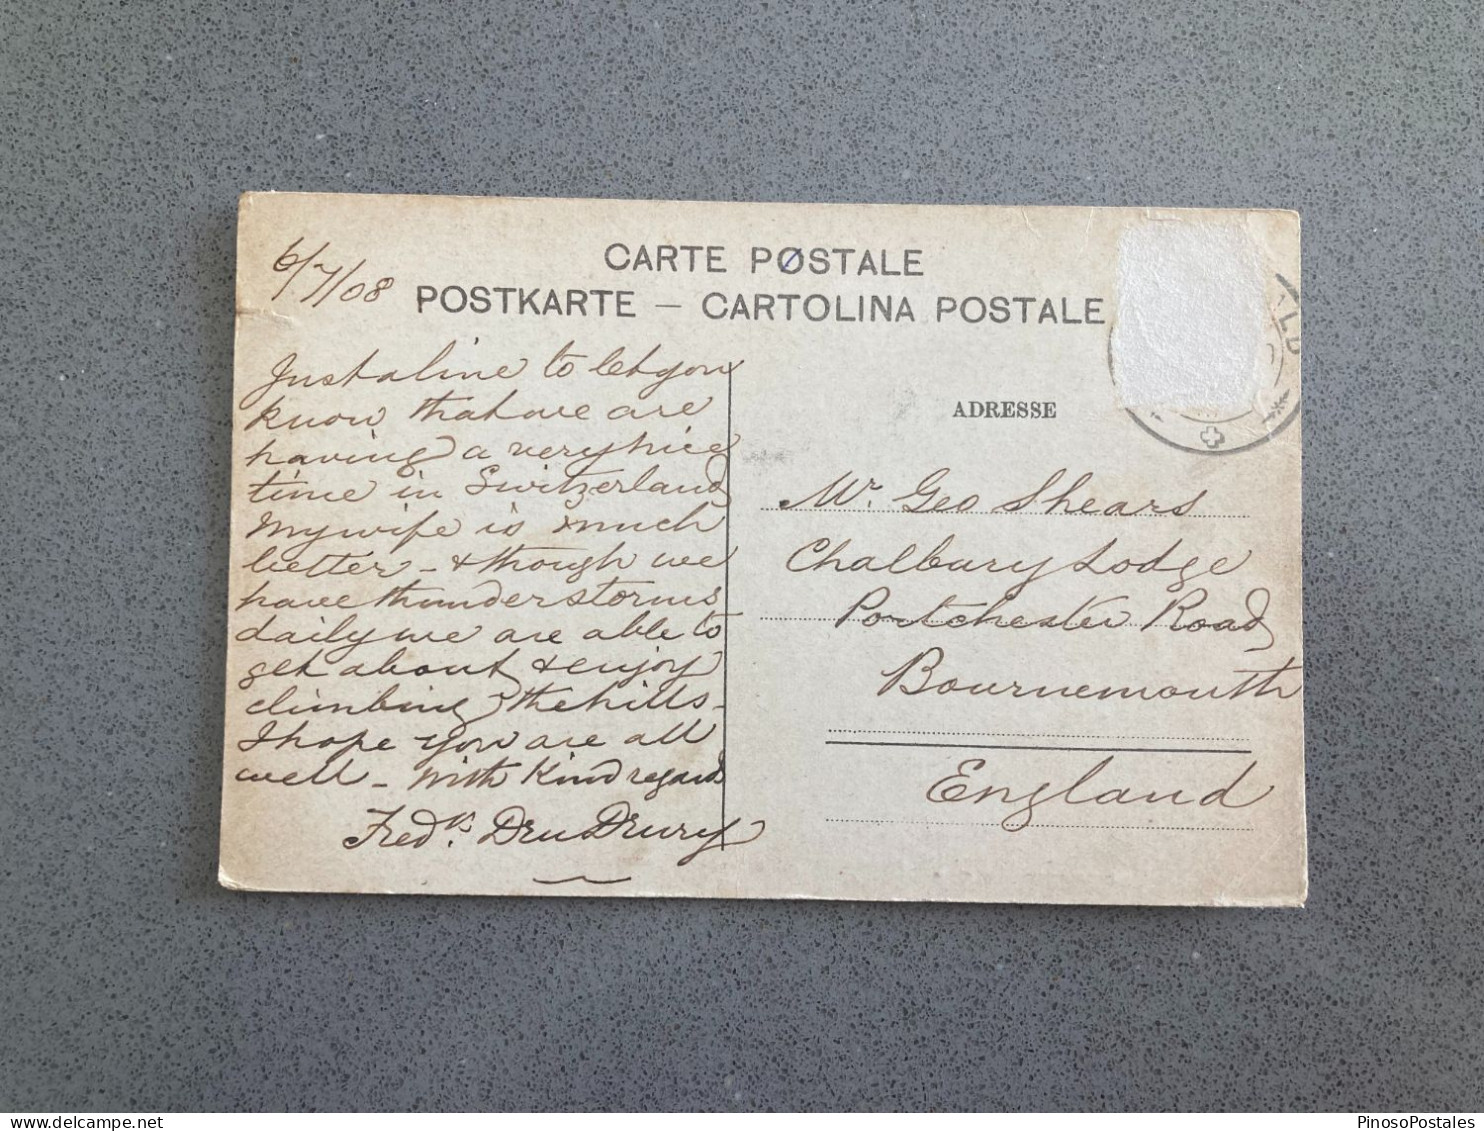 6/7/08
CARTE POSTALE
POSTKARTE — CARTOLINA POSTALE
Just a line to let you
know that we are
having a very nice
time in Switzerland
My wife is much
better - & though we
have thunder storms
daily we are able to
get about & enjoy
climbing the hills -
I hope you are all
well - With Kind regards
Fredk. Dru Drury
ADRESSE
Mr. Geo Shears
Chalbury Lodge
Portchester Road
Bournemouth
England
LD
www.delcampe.net
PinosoPostales